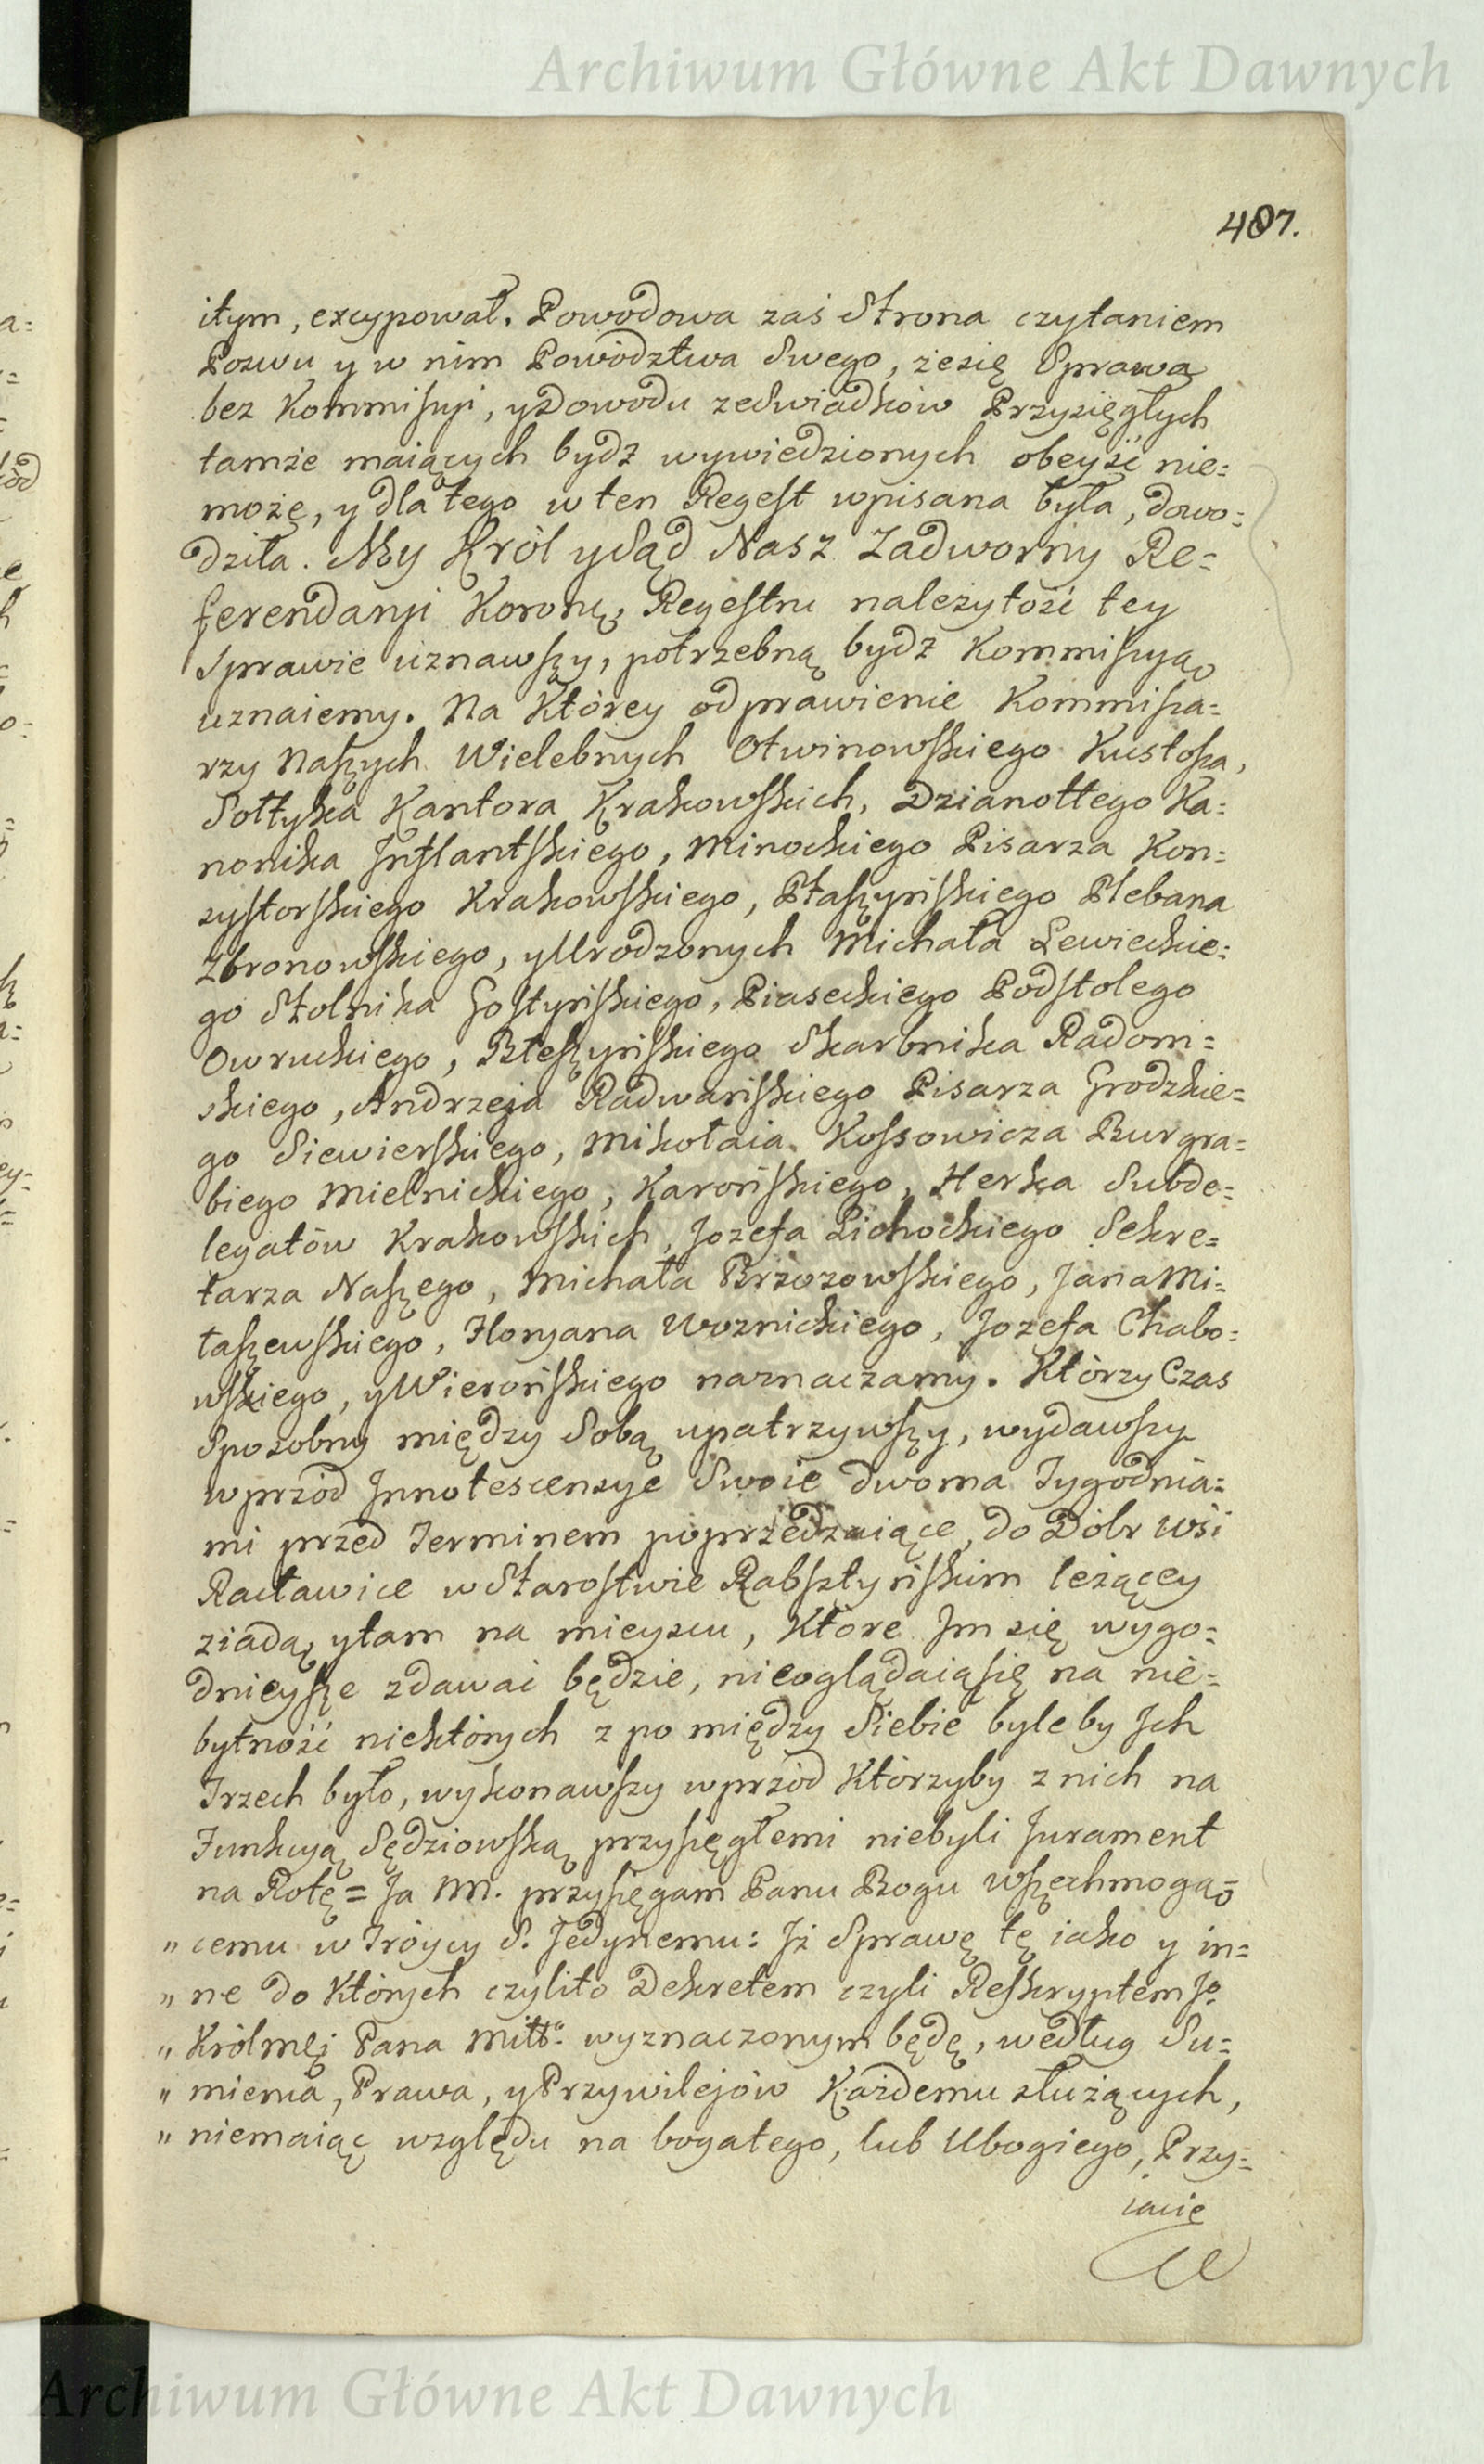 Archiwum Główne Akt Dawnych
407.
itym, excypował. Powodowa zaś Strona czytaniem
Pozwu y w nim Powodztwa Swego, że się Sprawa
bez Kommissyi, y Dowodu ze Swiadkow Przysięgłych
tamże maiących bydz wywiedzionych obeyść nie=
możę, y dla tego w ten Regest wpisana była, dowo=
dziła. My Król y Sąd Nasz Zadworny Re=
ferendaryi Koronę, Regestru należytość tey
Sprawie uznawszy, potrzebną bydz Kommissyą
uznaiemy. Na Którey odprawienie Kommissa=
rzy Naszych Wielebnych Otwinowskiego Kustosza,
Sołtyka Kantora Krakowskich, Dzianottego Ka=
nonika Inflantskiego, Minockiego Pisarza Kon=
systorskiego Krakowskiego, Ptaszyńskiego Plebana
Zbronowskiego, y Urodzonych Michała Lewieckie=
go Stolnika Gostyńskiego, Piaseckiego Podstolego
Owruckiego, Bleszyńskiego Skarbnika Radom=
skiego, Andrzeja Radwańskiego Pisarza Grodzkie=
go Siewierskiego, Mikołaia Kossowicza Burgra=
biego Mielnickiego, Karońskiego, Herka Subde=
legatów Krakowskich, Jozefa Lichockiego Sekre=
tarza Naszego, Michała Brzozowskiego, Jana Mi=
łaszewskiego, Floryana Woznickiego, Jozefa Chabo=
wskiego, y Wierońskiego naznaczamy. Którzy Czas
Sposobny między Sobą upatrzywszy, wydawszy
wprzód Innotescensye Swoie dwoma Tygodnia=
mi przed Terminem poprzedzaiące, do Dóbr wsi
Racławice w Starostwie Rabsztyńskim leżącey
ziadą, y tam na mieyscu, Które Im się wygo=
dnieysze zdawać będzie, nieoglądaiąsię na nie=
bytność niektórych z po między Siebie byle by Ich
Trzech było, wykonawszy wprzód Którzyby z nich na
Funkcyą Sędziowską przysięgłemi niebyli Jurament
na Rotę = Ja NN. przysięgam Panu Bogu wszechmogą=
" cemu w Tróycy S. Jedynemu: Iż Sprawę tę iako y in=
" ne do Których czylito Dekretem czyli Reskryptem Jo
" Królmęi Pana Miłło. wyznaczonym będę, według Su=
" mienia, Prawa, y Przywilejów Każdemu służących,
" niemaiąc względu na bogatego, lub Ubogiego, Przy=
iacie
Archiwum Główne Akt Dawnych